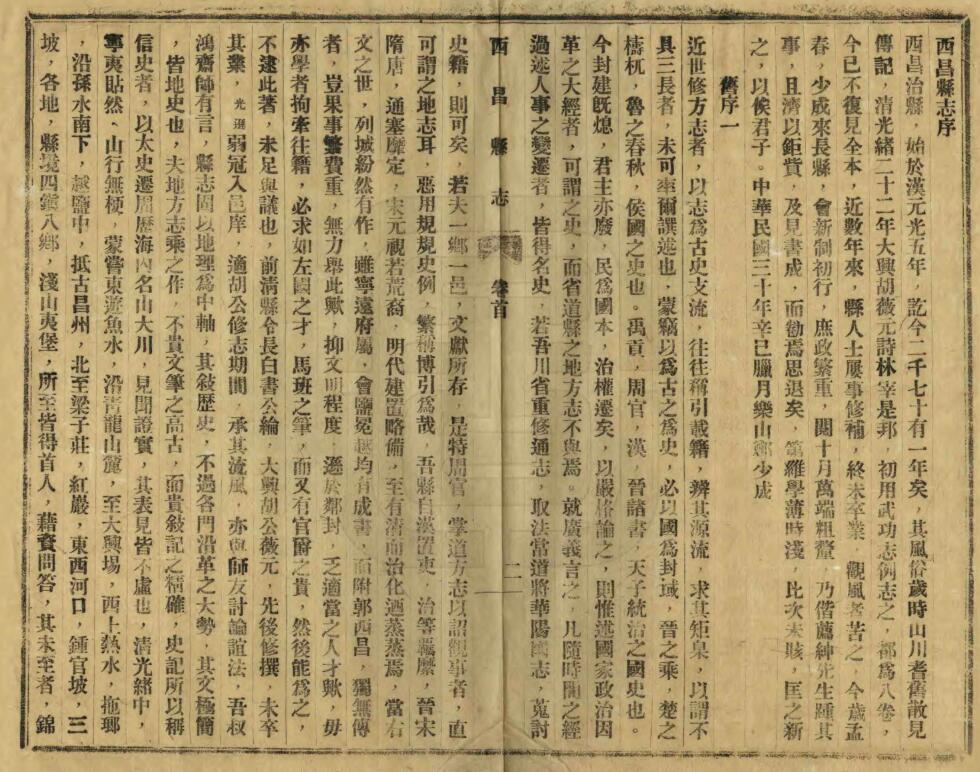 西昌縣志序
西昌治縣，始於漢元光五年，訖今二千七十有一年矣，其風俗歲時山川耆舊散見
傳記，清光緒二十二年大興胡薇元詩林宰是邦，初用武功志例志之，都為八卷，
今已不復見全本，近數年來，縣人士屢事修補，終未卒業，觀風者苦之，今歲孟
春，少成來長縣，會新制初行，庶政繁重，閱十月萬端粗釐，乃偕薦紳先生踵其
事，且濟以鉅貲，及見書成，而勸焉思退矣，第維學薄時淺，比次未賅，匡之新
之，以俟君子。中華民國三十年辛巳臘月樂山鄭少成
舊序一
近世修方志者，以志為古史支流，往往稱引載籍，辨其源流，求其矩臬，以謂不
具三長者，未可率爾譔述也，蒙竊以為古之為史，必以國為封域，晉之乘，楚之
檮杌，魯之春秋，侯國之史也。禹貢，周官，漢，晉諸書，天子統治之國史也。
今封建既熄，君主亦廢，民為國本，治權遷矣，以嚴格論之，則惟述國家政治因
革之大經者，可謂之史，而省道縣之地方志不與焉。就廣義言之，凡隨時間之經
過述人事之變遷者，皆得名史，若吾川省重修通志，取法當道將華陽國志，蒐討
西昌縣志 卷首 二
史籍，則可矣，若夫一鄉一邑，文獻所存，是特周官，掌道方志以詔觀事者，直
可謂之地志耳，惡用規規史例，繁稱博引為哉，吾縣自漢置吏，治等羈縻，晉宋
隋唐，通塞靡定，宋元視若荒裔，明代建置略備，至有清而治化迺蒸蒸焉，當右
文之世，列城紛然有作，雖寧遠府屬，會鹽冕越均有成書，而附郭西昌，獨無傳
者，豈果事繁費重，無力舉此歟，抑文明程度，遜於鄰封，乏適當之人才歟，毋
亦學者拘牽往籍，必求如左國之才，馬班之筆，而又有官爵之貴，然後能為之，
不逮此著，未足與議也，前清縣令長白書公綸，大興胡公薇元，先後修撰，未卒
其業，光選弱冠入邑庠，適胡公修志期間，承其流風，亦與師友討論誼法，吾叔
鴻齋師有言，縣志固以地理為中軸，其敍歷史，不過各門沿革之大勢，其文極簡
，皆地史也，夫地方志乘之作，不貴文筆之高古，而貴敍記之精確，史記所以稱
信史者，以太史遷周歷海內名山大川，見聞證實，其表見皆不虛也，清光緒中，
寧夷貼然，山行無梗，蒙嘗東遊魚水，沿青龍山麓，至大興場，西上熱水，拖瑯
，沿孫水南下，越鹽中，抵古昌州，北至梁子莊，紅巖，東西河口，鍾官坡，三
坡，各地，縣境四鎮八鄉，淺山夷堡，所至皆得首人，藉資問答，其未至者，錦